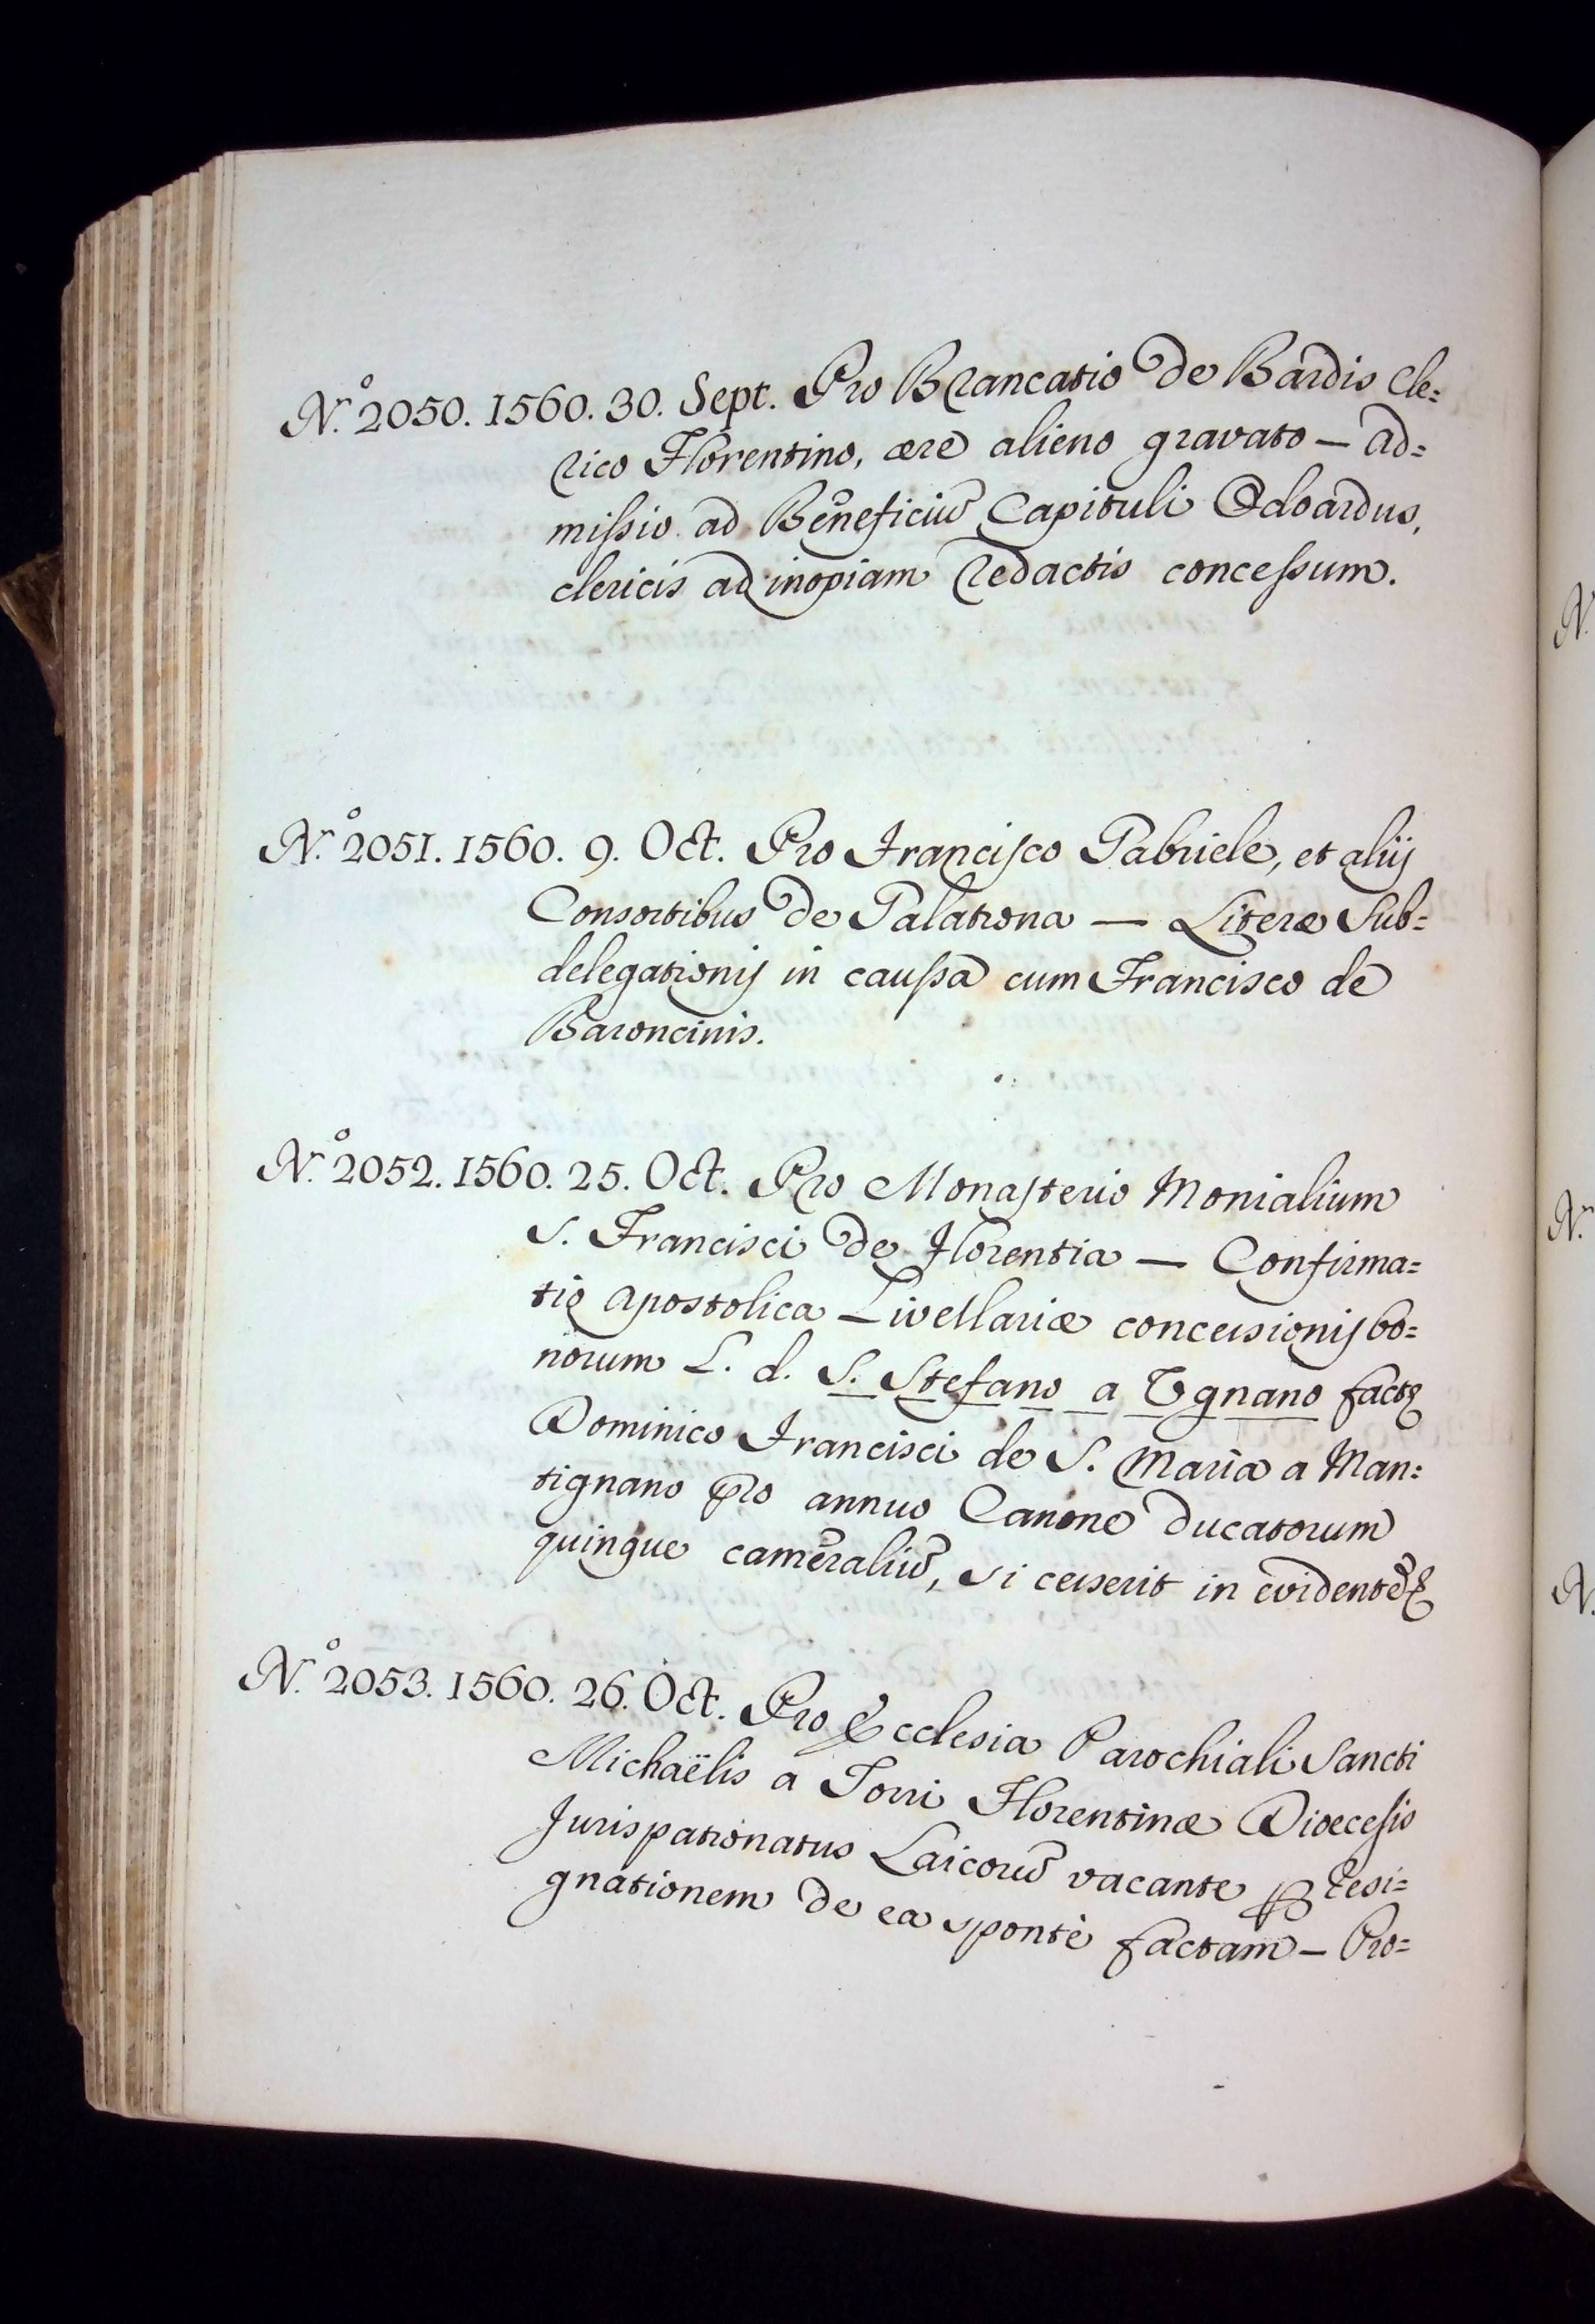 N.º 2050. 1560. 30. Sept. Pro Brancatio de Bardis Cle=
rico Florentino, ære alieno gravato — ad=
missio ad Beneficiũ Capituli Odoardus,
clericis ad inopiam redactis concessum.
N.º 2051. 1560. 9. Oct. Pro Francisco Gabriele, et alijs
Consortibus de Palatrona — Literæ Sub=
delegationis in caussa cum Francisco de
Baroncinis.
N.º 2052. 1560. 25. Oct. Pro Monasterio Monialium
S. Francisci de Florentia — Confirma=
tio Apostolica Livellariæ concessionis bo=
norum L. d. S. Stefano a Ugnano factę
Dominico Francisci de S. Maria a Man=
tignano pro annuo Canone ducatorum
quinque cameraliũ, si cesserit in evidentẽ &
N.º 2053. 1560. 26. Oct. Pro Ecclesia Parochiali Sancti
Michaëlis a Torri Florentinæ Dioecesis
Jurispatronatus Laicorũ vacante ꝑ resi=
gnationem de ea sponte factam — Pro=
N.
N.
N.